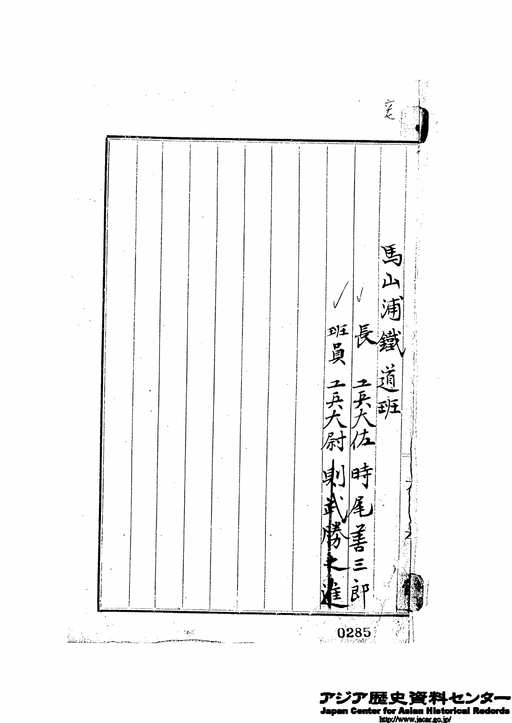 馬山浦鐵道班
長 工兵大佐 時尾善三郎
班員 工兵大尉 則武勝之進
0285
アジア歴史資料センター
Japan Center for Asian Historical Records
http://www.jacar.go.jp/